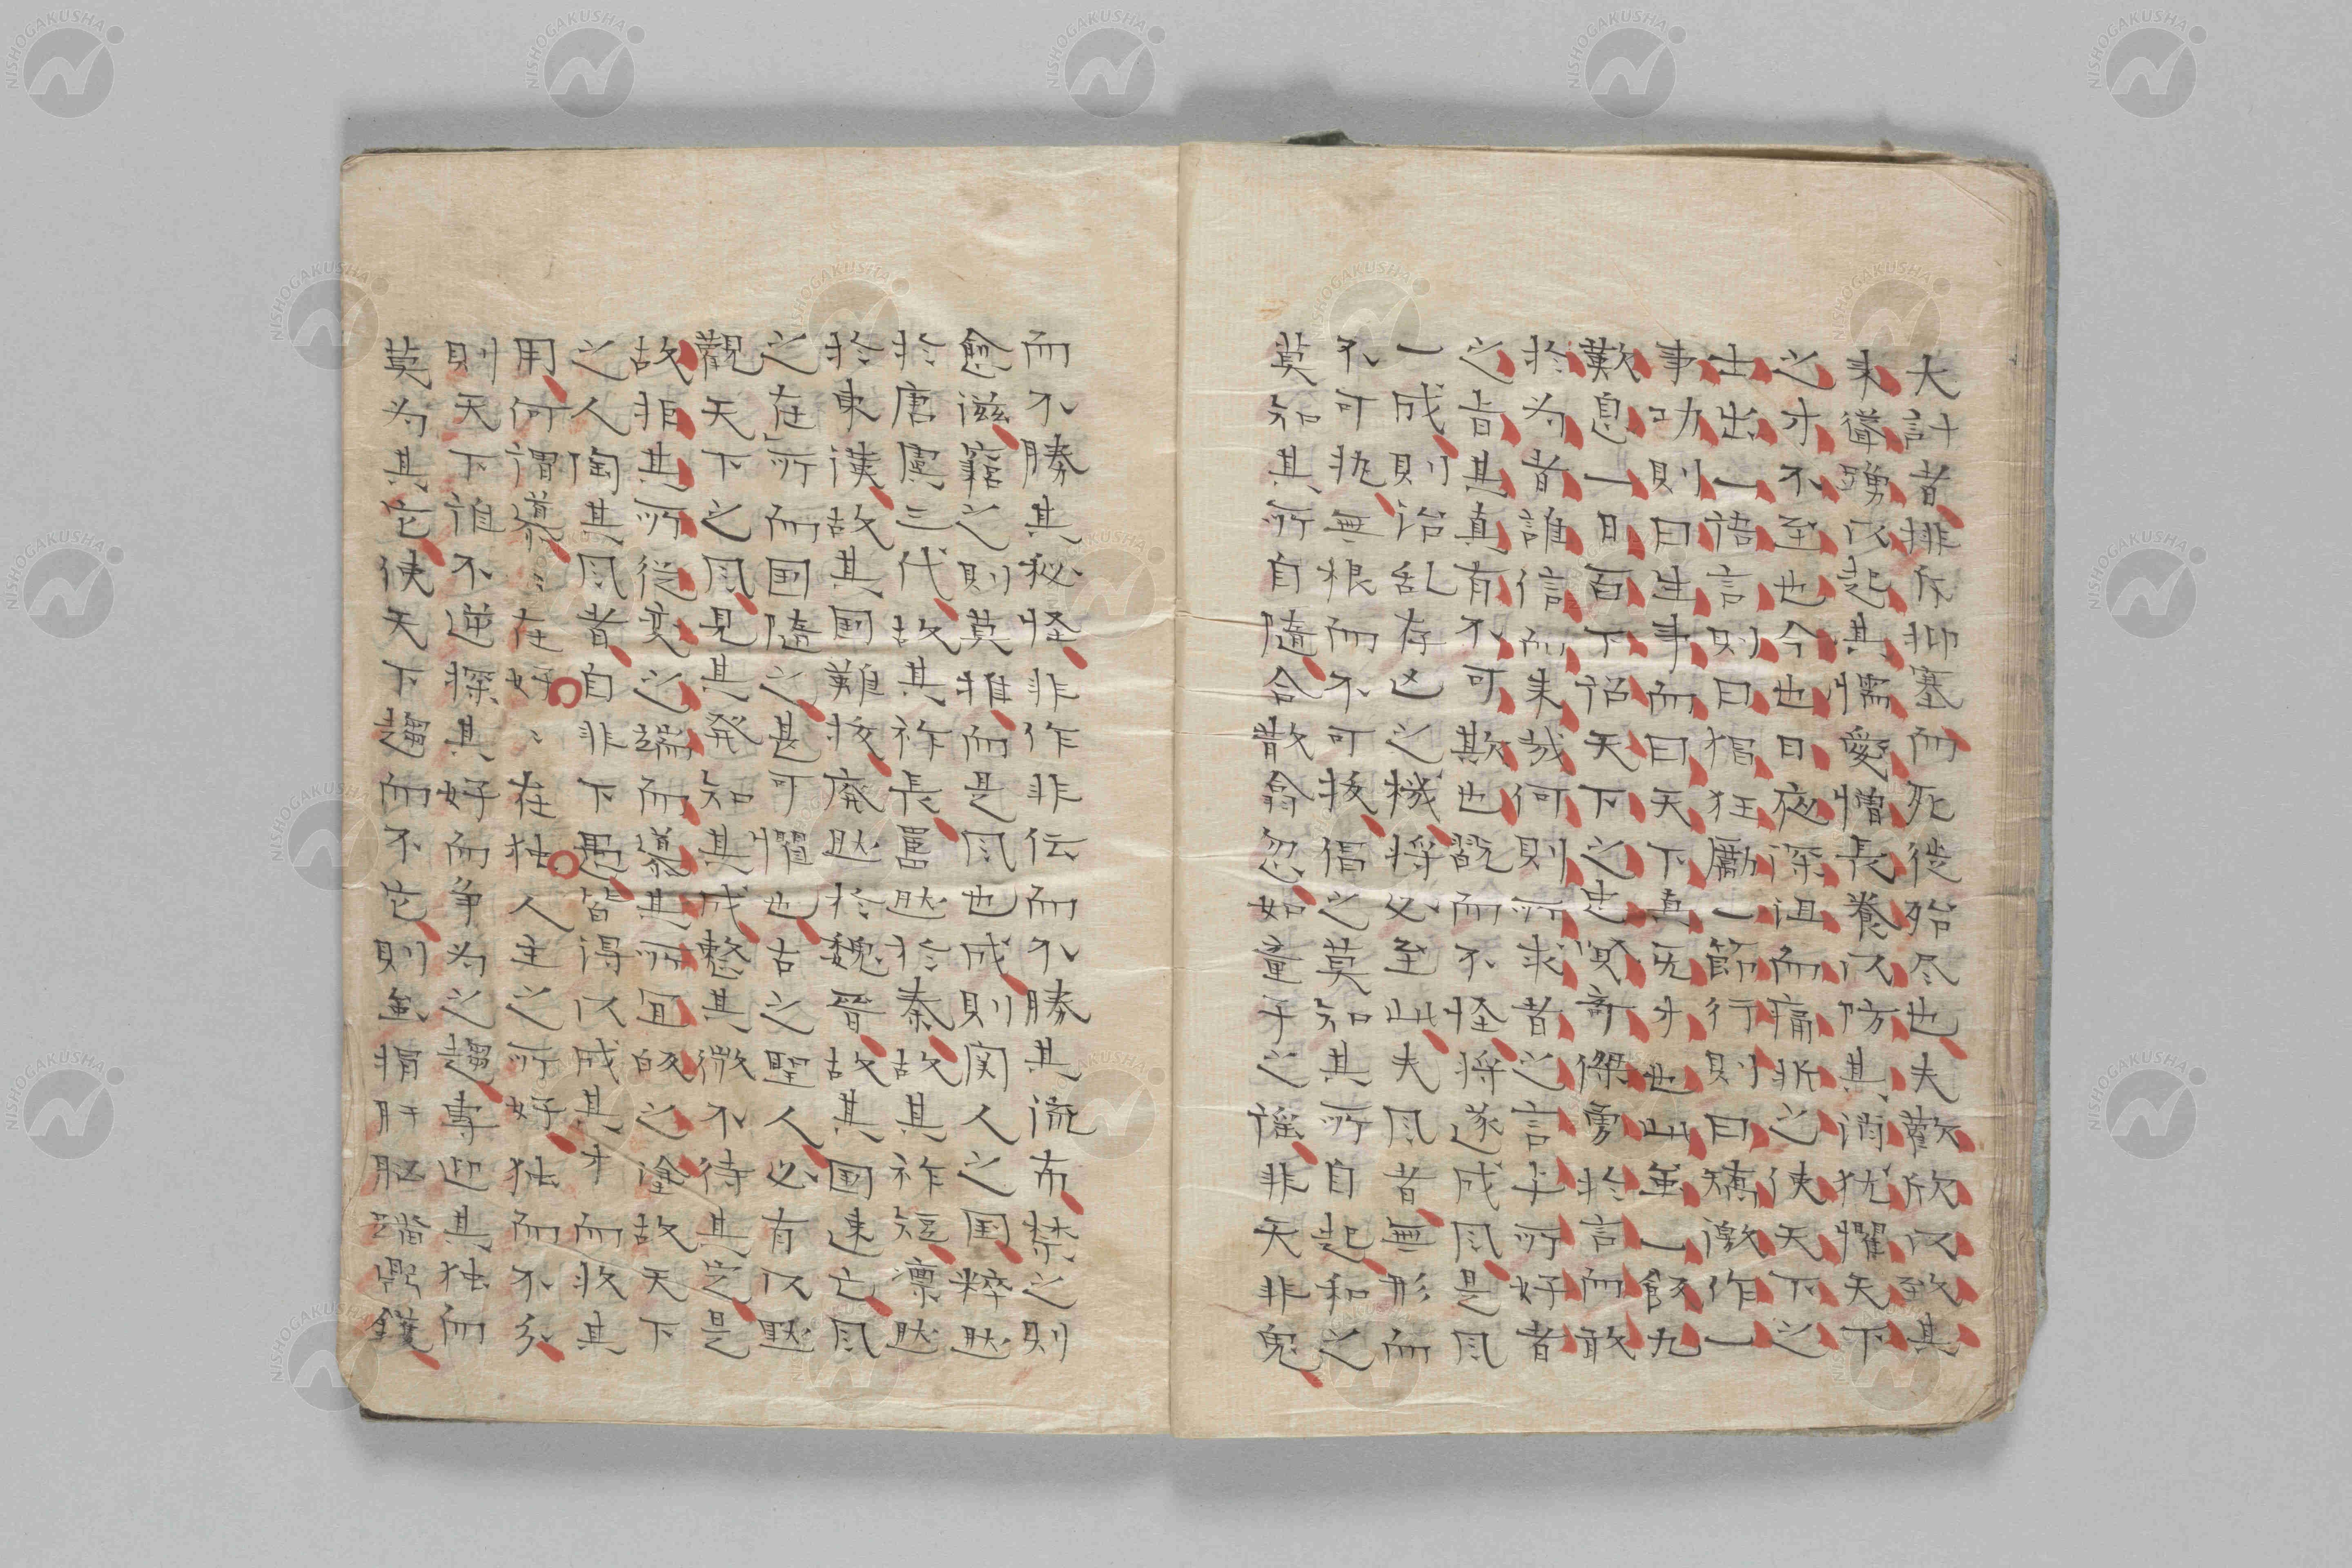 大計者排斥抑塞而死徙殆尽也夫歡欣以致其
来聳踴以起其懦愛憎長養以防其消犹懼天下
之才不至也今也日夜深沮而痛折之使天下之
士出一語言則曰猖狂厲一節行則曰矯激作一
事功則曰生事而曰天下真旡才也山虽一飯九
歎息一日百下詔天下之忠賢奇傑勇於言而敢
於為者誰信而来哉何則所求者之言乎所好者
之旨其真有不可欺也翫而不怪将遂成風是風
一成則治乱存亡之機将必至山夫風者無形而
不可执無根而不可拔倡之莫知其所自起和之
莫知其所自隨合散翕忽如童子之謡非天非鬼
而不勝其秘怪非作非伝而不勝其流布禁之則
愈滋窮之則莫推而是風也成則関人之国粹然
於唐虞三代故其祚長駡然於秦故其祚短凛然
於東漢故其国難拔廃然於魏晉故其国速亡風
之在所而国隨之甚可懼也古之聖人必有以默
觀天下之風見其発知其成整其微不待其定是
故非其所從变之端而導其所宜皈之塗故天下
之人陶其風者自非下愚皆得以成其才而收其
用何謂導〻在好〻在独人主之所好独而不分
則天下誰不逆探其好而争為之趨専迎其独而
莫為其它使天下趨而不它則虽捐肝脳蹈鼎鑊
NISHOGAKUSHA